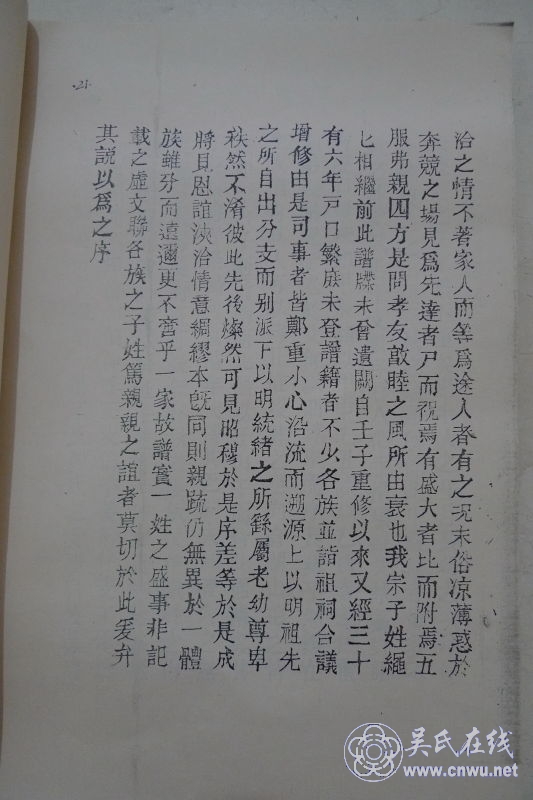 21
洽之情不著家人而等爲途人者有之况末俗凉薄惑於
奔競之場見爲先達者尸而視焉有盛大者比而附焉五
服弗親四方是問孝友敦睦之風所由衰也我宗子姓繩
七相繼前此譜牒未曾遺闕自壬子重修以來又經三十
有六年戸口繁庶未登譜籍者不少各族並詣祖祠合議
增修由是司事者皆鄭重小心沿流而遡源上以明祖先
之所自出分支而别派下以明統緒之所繇屬老幼尊卑
秩然不淆彼此先後燦然可見昭穆於是序差等於是成
將見恩誼浹洽情意綢繆本旣同則親疏仍無異於一體
族雖分而遠邇更不啻乎一家故譜實一姓之盛事非記
載之虛文聯各族之子姓篤親親之誼者莫切於此爰弁
其説以爲之序
吴氏在线
www.cnwu.net